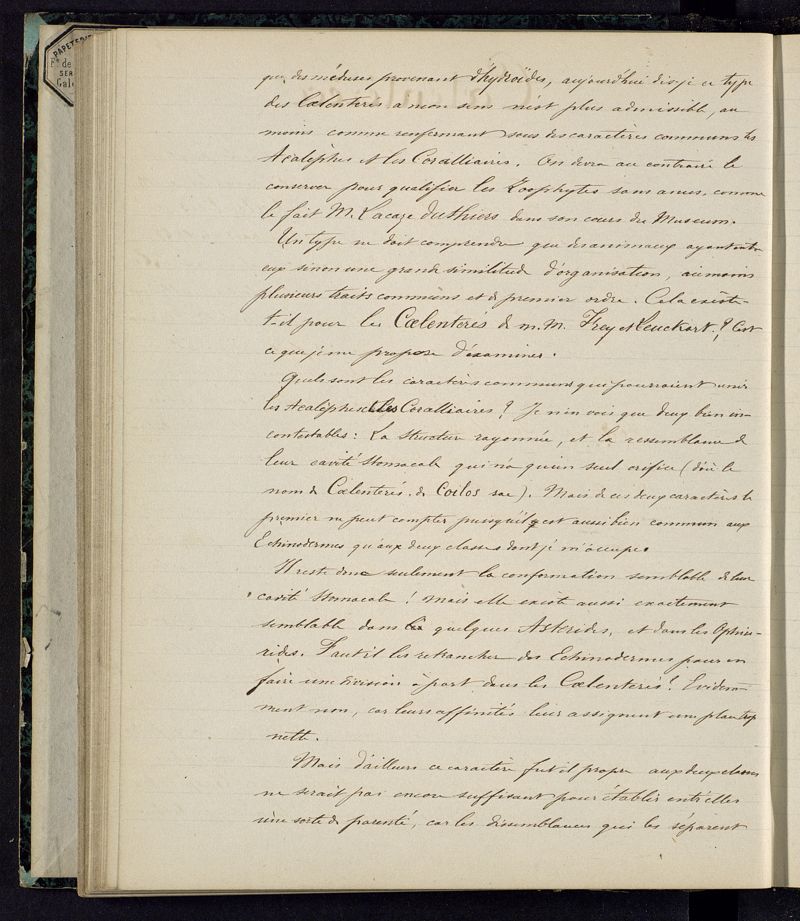 PAPETERIE
que des méduses provenant d'hydroïdes, aujourd'hui dis-je ce type
des Cœlenterés a mon sens n'est plus admissible, au
moins comme renfermant sous des caractères communs les
Acalèphes et les Coralliaires. On devra au contraire le
conserver pour qualifier les Zoophytes sans anus, comme
le fait M. Lacaze Duthiers dans son cours du Museum.
Un type ne doit comprendre que des animaux ayant entre
eux sinon une grande similitude d'organisation, au moins
plusieurs traits communs et de premier ordre. Cela existe-
t-il pour les Cœlenterés de M.M. Frey et Leuckart? C'est
ce que je me propose d'examiner.
Quels sont les caractères communs qui pourraient unir
les Acalèphes et les Coralliaires? Je n'en vois que deux bien in-
contestables: La structure rayonnée, et la ressemblance de
leur cavité stomacale qui n'a qu'un seul orifice (d'où le
nom de Cœlenterés, de Coilos sac). Mais de ces deux caractères le
premier ne peut compter puisqu'il est aussi bien commun aux
Echinodermes qu'aux deux classes dont je m'occupe.
Il reste donc seulement la conformation semblable de leur
cavité stomacale! Mais elle existe aussi exactement
semblable dans quelques Astérides, et dans les Ophiu-
rides. Faut-il les retrancher des Echinodermes pour en
faire une division à part dans les Cœlenterés? Evidem-
ment non, car leurs affinités leur assignent une place trop
nette.
Mais d'ailleurs ce caractère fut-il propre aux deux classes
ne serait pas encore suffisant pour établir entr'elles
une sorte de parenté, car les dissemblances qui les séparent